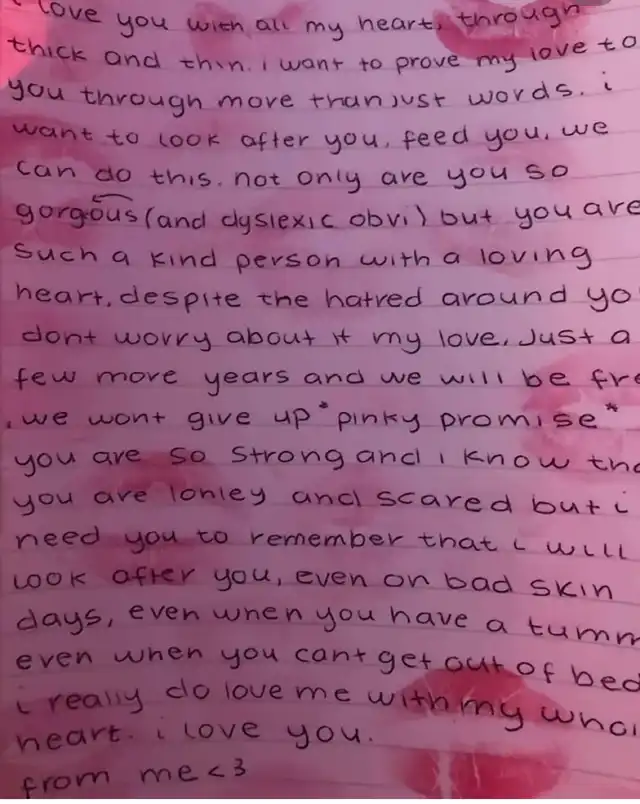 i love you with all my heart, through
thick and thin. i want to prove my love to
you through more than just words. i
want to look after you, feed you, we
can do this. not only are you so
gorgous (and dyslexic obvi) but you are
such a kind person with a loving
heart, despite the hatred around yo
dont worry about it my love, just a
few more years and we will be fre
, we wont give up *pinky promise*
you are so strong and i know tha
you are lonley and scared but i
need you to remember that i will
look after you, even on bad skin
days, even when you have a tumm
even when you cant get out of bed
i really do love me with my whol
heart. i love you.
from me <3